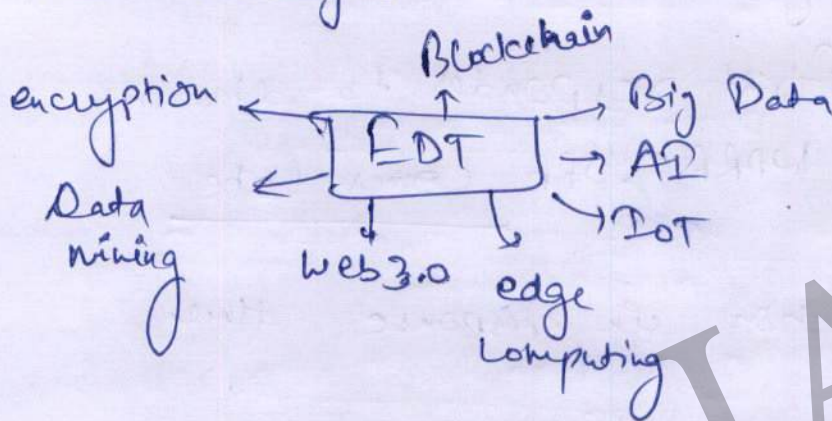 Blockchain
encryption
Big Data
EDT
AI
Data
mining
IoT
Web3.0
edge
computing
IA